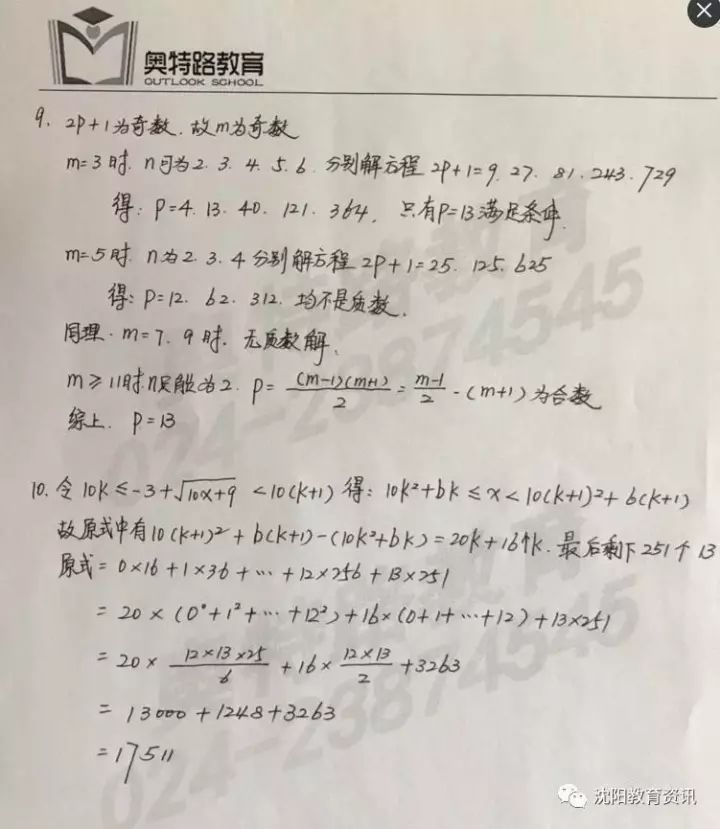 奥特路教育
OUTLOOK SCHOOL
9. 2p+1为奇数. 故m为奇数
m=3时. n可为2. 3. 4. 5. 6. 分别解方程 2p+1=9. 27. 81. 243. 729
得: p=4. 13. 40. 121. 364. 只有p=13满足条件.
m=5时. n为2. 3. 4 分别解方程 2p+1=25. 125. 625
得: p=12. 62. 312. 均不是质数.
同理. m=7. 9时. 无质数解.
m≥11时. n只能为2. p= (m-1)(m+1)/2 = m-1/2 · (m+1) 为合数
综上. p=13
10. 令 10k≤-3+√10x+9 <10(k+1) 得: 10k²+6k≤x<10(k+1)²+6(k+1)
故原式中有10(k+1)²+6(k+1)-(10k²+6k)=20k+16个k. 最后剩下251个13
原式= 0×16+1×36+…+12×256+13×251
= 20×(0²+1²+…+12²)+16×(0+1+…+12)+13×251
= 20× 12×13×25/6 +16× 12×13/2 +3263
= 13000+1248+3263
=17511
奥特路教育
024-23874545
奥特路教育
024-23874545
沈阳教育资讯